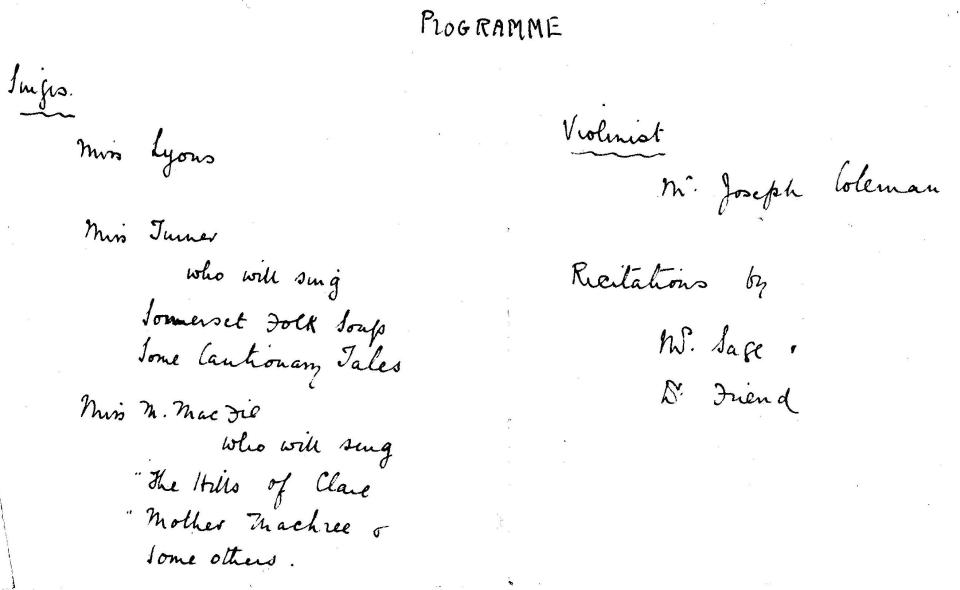 PROGRAMME
Singers.
Miss Lyons
Miss Turner
who will sing
Sommerset Folk Songs
Some Cautionary Tales
Miss M. MacFie
who will sing
"The Hills of Clare
"Mother Machree &
some others.
Violinist
Mr. Joseph Coleman
Recitations by
Mrs. Sage .
Dr. Friend